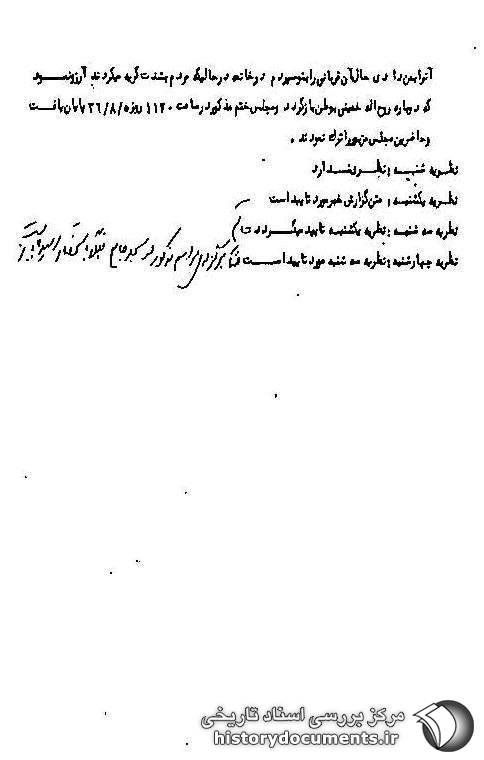 آنرا بمن داد ی حال آن قربانی را بتو سپردم در خاتمه در حالیکه مردم بشدت گریه میکردند آرزو نمود
که دوباره روح اله خمینی بوطن بازگردد و مجلس ختم مذکور در ساعت ۱۱۴۰ روز ۲۶/۸/ پایان یافت
و حاضرین مجلس مزبور را ترک نمودند .
نظریه شنبه : نظری ندارد
نظریه یکشنبه : متن گزارش خبر مورد تایید است
نظریه سه شنبه : نظریه یکشنبه تایید میگردد
نظریه چهارشنبه : نظریه سه شنبه مورد تایید است ضمنا برگزاری مراسم مذکور در مسجد جامع
مرکز بررسی اسناد تاریخی
historydocuments.ir